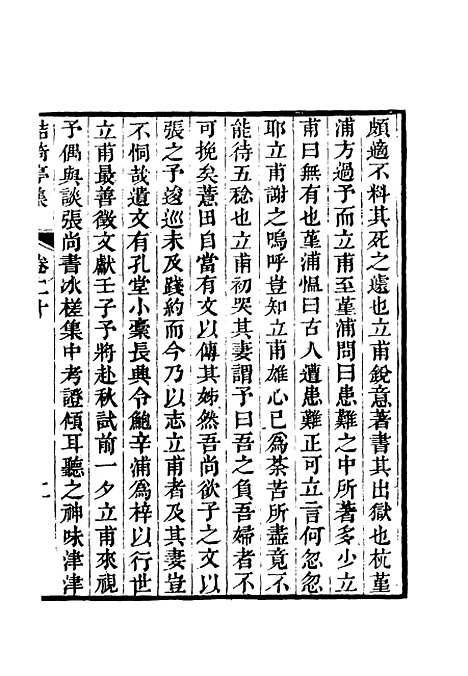 頗適不料其死之遽也立甫銳意著書其出獄也杭堇
浦方過予而立甫至堇浦問曰患難之中所著多少立
甫曰無有也堇浦愠曰古人遭患難正可立言何忽忽
耶立甫謝之嗚呼豈知立甫雄心已爲荼苦所盡竟不
能待五稔也立甫初哭其妻謂予曰吾之負吾婦者不
可挽矣蒼田自當有文以傳其姊然吾尚欲子之文以
張之予逡巡未及踐約而今乃以志立甫者及其妻豈
不恫哉遺文有孔堂小稾長興令鮑辛浦爲梓以行世
立甫最善徵文獻壬子予將赴秋試前一夕立甫來視
予偶與談張尚書冰槎集中考證傾耳聽之神味津津
鮚埼亭集
卷二十
二